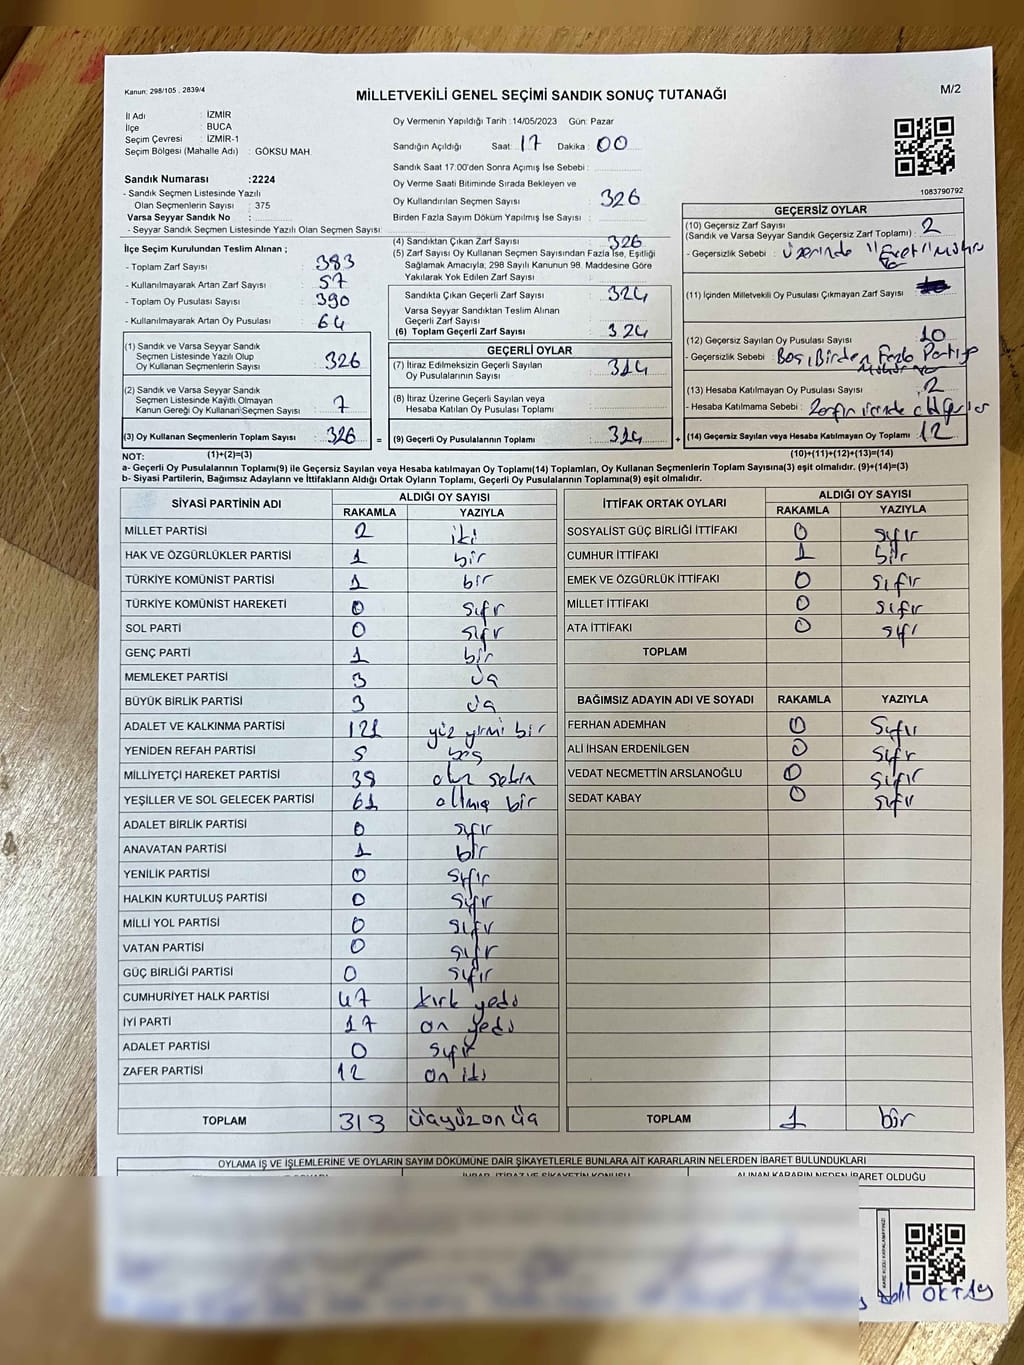 Kanun: 298/105 , 2839/4
MİLLETVEKİLİ GENEL SEÇİMİ SANDIK SONUÇ TUTANAĞI
M/2
İl Adı : İZMİR
İlçe : BUCA
Seçim Çevresi : İZMİR-1
Seçim Bölgesi (Mahalle Adı) : GÖKSU MAH.
Oy Vermenin Yapıldığı Tarih :14/05/2023 Gün: Pazar
Sandığın Açıldığı Saat: 17 Dakika : 00
Sandık Saat 17:00'den Sonra Açımış İse Sebebi :
Sandık Numarası :2224
- Sandık Seçmen Listesinde Yazılı
Olan Seçmenlerin Sayısı : 375
Varsa Seyyar Sandık No :
- Seyyar Sandık Seçmen Listesinde Yazılı Olan Seçmen Sayısı:
Oy Verme Saati Bitiminde Sırada Bekleyen ve
Oy Kullandırılan Seçmen Sayısı : 326
Birden Fazla Sayım Döküm Yapılmış İse Sayısı :
1083790792
İlçe Seçim Kurulundan Teslim Alınan ;
- Toplam Zarf Sayısı : 383
- Kullanılmayarak Artan Zarf Sayısı : 57
- Toplam Oy Pusulası Sayısı : 390
- Kullanılmayarak Artan Oy Pusulası : 64
(1) Sandık ve Varsa Seyyar Sandık
Seçmen Listesinde Yazılı Olup
Oy Kullanan Seçmenlerin Sayısı : 326
(2) Sandık ve Varsa Seyyar Sandık
Seçmen Listesinde Kayıtlı Olmayan
Kanun Gereği Oy Kullanan Seçmen Sayısı : 7
(3) Oy Kullanan Seçmenlerin Toplam Sayısı : 326 =
(4) Sandıktan Çıkan Zarf Sayısı : 326
(5) Zarf Sayısı Oy Kullanan Seçmen Sayısından Fazla İse, Eşitliği
Sağlamak Amacıyla; 298 Sayılı Kanunun 98. Maddesine Göre
Yakılarak Yok Edilen Zarf Sayısı :
Sandıkta Çıkan Geçerli Zarf Sayısı : 324
Varsa Seyyar Sandıktan Teslim Alınan
Geçerli Zarf Sayısı :
(6) Toplam Geçerli Zarf Sayısı : 324
GEÇERLİ OYLAR
(7) İtiraz Edilmeksizin Geçerli Sayılan
Oy Pusulalarının Sayısı : 314
(8) İtiraz Üzerine Geçerli Sayılan veya
Hesaba Katılan Oy Pusulası Toplamı :
(9) Geçerli Oy Pusulalarının Toplamı : 314 +
GEÇERSİZ OYLAR
(10) Geçersiz Zarf Sayısı : 2
(Sandık ve Varsa Seyyar Sandık Geçersiz Zarf Toplamı)
- Geçersizlik Sebebi : üzerinde "Evet"
(11) İçinden Milletvekili Oy Pusulası Çıkmayan Zarf Sayısı
(12) Geçersiz Sayılan Oy Pusulası Sayısı : 10
- Geçersizlik Sebebi Boş, Birden Fazla Partiye
(13) Hesaba Katılmayan Oy Pusulası Sayısı : 2
- Hesaba Katılmama Sebebi : Zarfın içinde
(14) Geçersiz Sayılan veya Hesaba Katılmayan Oy Toplamı : 12
NOT: (1)+(2)=(3) (10)+(11)+(12)+(13)=(14)
a- Geçerli Oy Pusulalarının Toplamı(9) ile Geçersiz Sayılan veya Hesaba katılmayan Oy Toplamı(14) Toplamları, Oy Kullanan Seçmenlerin Toplam Sayısına(3) eşit olmalıdır. (9)+(14)=(3)
b- Siyasi Partilerin, Bağımsız Adayların ve İttifakların Aldığı Ortak Oyların Toplamı, Geçerli Oy Pusulalarının Toplamına(9) eşit olmalıdır.
SİYASİ PARTİNİN ADI ALDIĞI OY SAYISI
RAKAMLA YAZIYLA
MİLLET PARTİSİ 2 iki
HAK VE ÖZGÜRLÜKLER PARTİSİ 1 bir
TÜRKİYE KOMÜNİST PARTİSİ 1 bir
TÜRKİYE KOMÜNİST HAREKETİ 0 sıfır
SOL PARTİ 0 sıfır
GENÇ PARTİ 1 bir
MEMLEKET PARTİSİ 3 üç
BÜYÜK BİRLİK PARTİSİ 3 üç
ADALET VE KALKINMA PARTİSİ 121 yüz yirmi bir
YENİDEN REFAH PARTİSİ 5 beş
MİLLİYETÇİ HAREKET PARTİSİ 38 otuz sekiz
YEŞİLLER VE SOL GELECEK PARTİSİ 61 altmış bir
ADALET BİRLİK PARTİSİ 0 sıfır
ANAVATAN PARTİSİ 1 bir
YENİLİK PARTİSİ 0 sıfır
HALKIN KURTULUŞ PARTİSİ 0 sıfır
MİLLİ YOL PARTİSİ 0 sıfır
VATAN PARTİSİ 0 sıfır
GÜÇ BİRLİĞİ PARTİSİ 0 sıfır
CUMHURİYET HALK PARTİSİ 47 kırk yedi
İYİ PARTİ 17 on yedi
ADALET PARTİSİ 0 sıfır
ZAFER PARTİSİ 12 on iki
TOPLAM 313 üçyüz on üç
İTTİFAK ORTAK OYLARI ALDIĞI OY SAYISI
RAKAMLA YAZIYLA
SOSYALİST GÜÇ BİRLİĞİ İTTİFAKI 0 sıfır
CUMHUR İTTİFAKI 1 bir
EMEK VE ÖZGÜRLÜK İTTİFAKI 0 sıfır
MİLLET İTTİFAKI 0 sıfır
ATA İTTİFAKI 0 sıfır
TOPLAM
BAĞIMSIZ ADAYIN ADI VE SOYADI RAKAMLA YAZIYLA
FERHAN ADEMHAN 0 sıfır
ALİ İHSAN ERDENİLGEN 0 sıfır
VEDAT NECMETTİN ARSLANOĞLU 0 sıfır
SEDAT KABAY 0 sıfır
TOPLAM 1 bir
OYLAMA İŞ VE İŞLEMLERİNE VE OYLARIN SAYIM DÖKÜMÜNE DAİR ŞİKAYETLERLE BUNLARA AİT KARARLARIN NELERDEN İBARET BULUNDUKLARI
İHBAR, İTİRAZ VE ŞİKAYETİN KONUSU ALINAN KARARIN NEDEN İBARET OLDUĞU
OKTAY